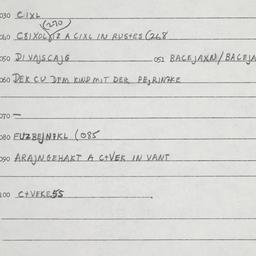 030 CIXL
(270)
040 CEIXOLJIZ A CIXL IN RUSTES (268
050 DIVAJSCAJG 051 BACEJAXN/BACEJA
060 DER CU DEM KIND MIT DER PEJRINZKE
070 —
080 FUZBEJNDKL (085
090 ARAJNGEHAKT A CTVEK IN VANT
100 CTVEKESS